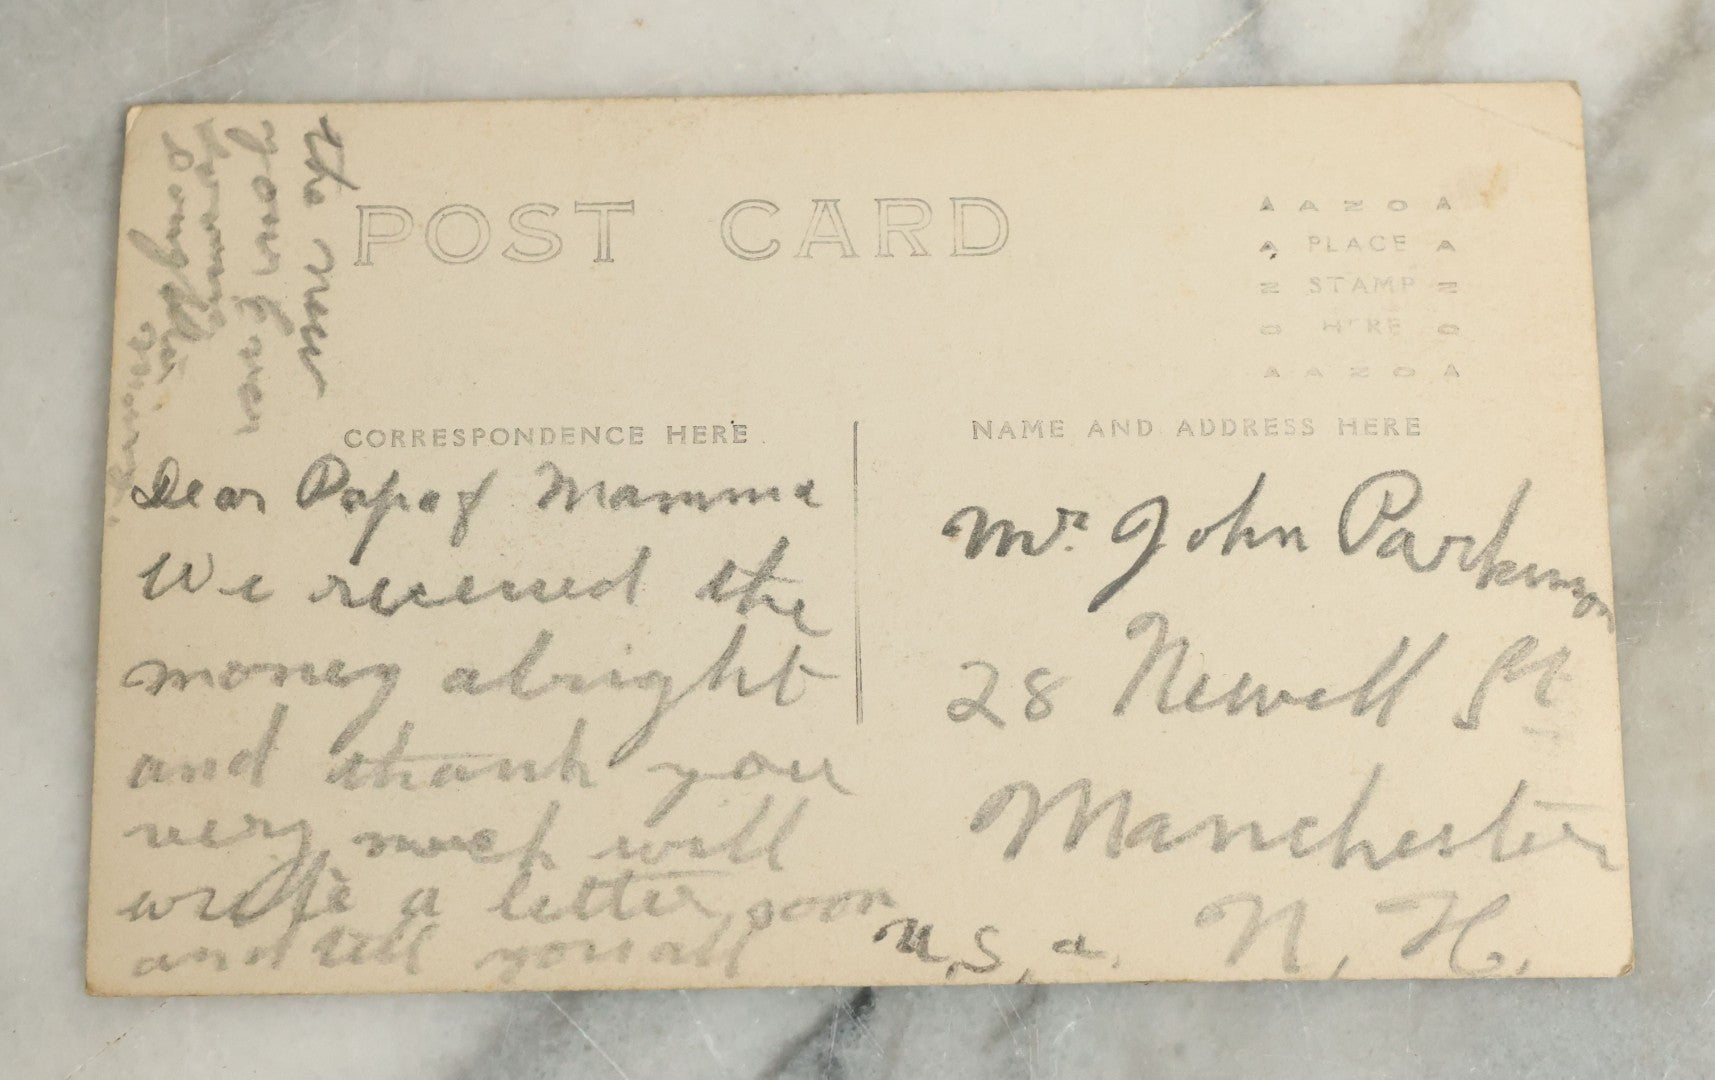 POST CARD
AZOA
PLACE
STAMP
HERE
AZOA
CORRESPONDENCE HERE
NAME AND ADDRESS HERE
Dear Papa & Mamma
We received the
money alright
and thank you
very much will
write a letter soon
and tell you all
the news
your ever
Daughter
Mr. John Parkinson
28 Newell St
Manchester
N. H.
U. S. a.